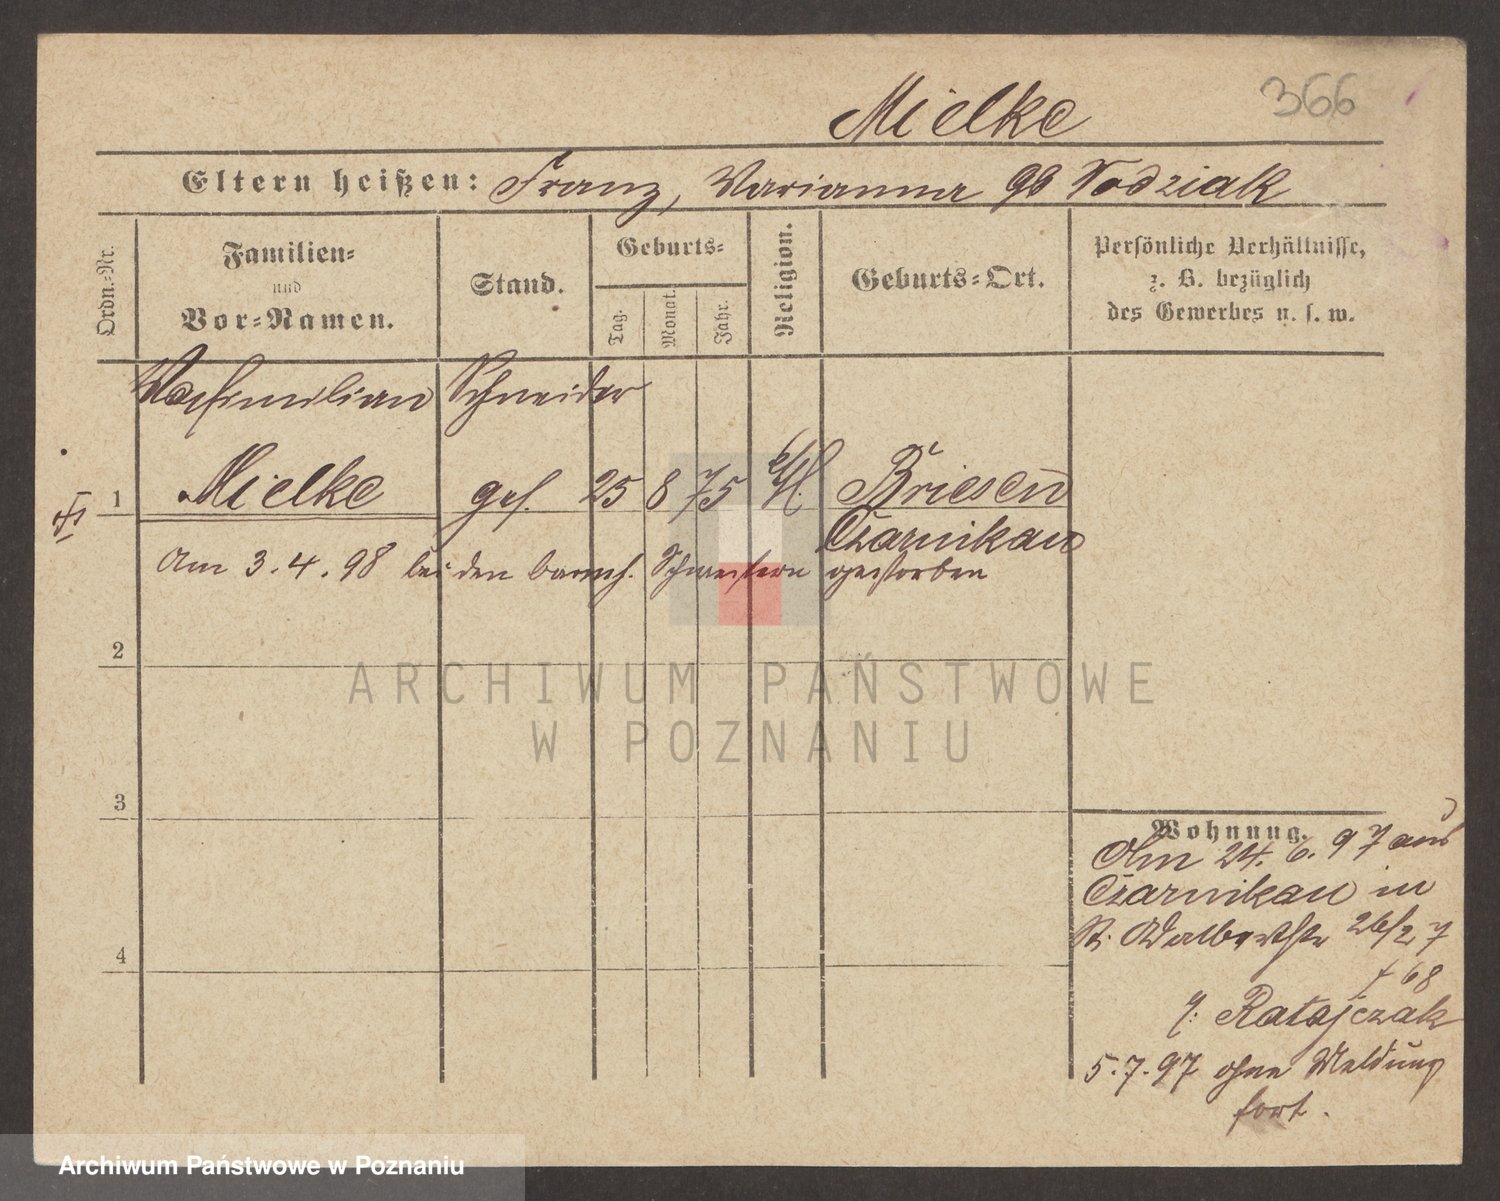 Mielke 366
Eltern heißen: Franz, Marianna gb
Ordn.-Nr.
Familien-
und
Vor-Namen.
Stand.
Geburts-
Tag.
Monat.
Jahr.
Religion.
Geburts-Ort.
Persönliche Verhältnisse,
z. B. bezüglich
des Gewerbes u. s. w.
Maximilian Schneider
1 Mielke ges. 25 8 75 Briesen
Czarnikau
Am 3.4.98 bei den barmh. Schwestern gestorben
2
ARCHIWUM PAŃSTWOWE
W POZNANIU
3
4
Wohnung.
Am 24. 6. 97 aus
Czarnikau in
St. Adalbertstr 26/27
68
Ratajczak
5.7.97 ohne Meldung
fort.
Archiwum Państwowe w Poznaniu